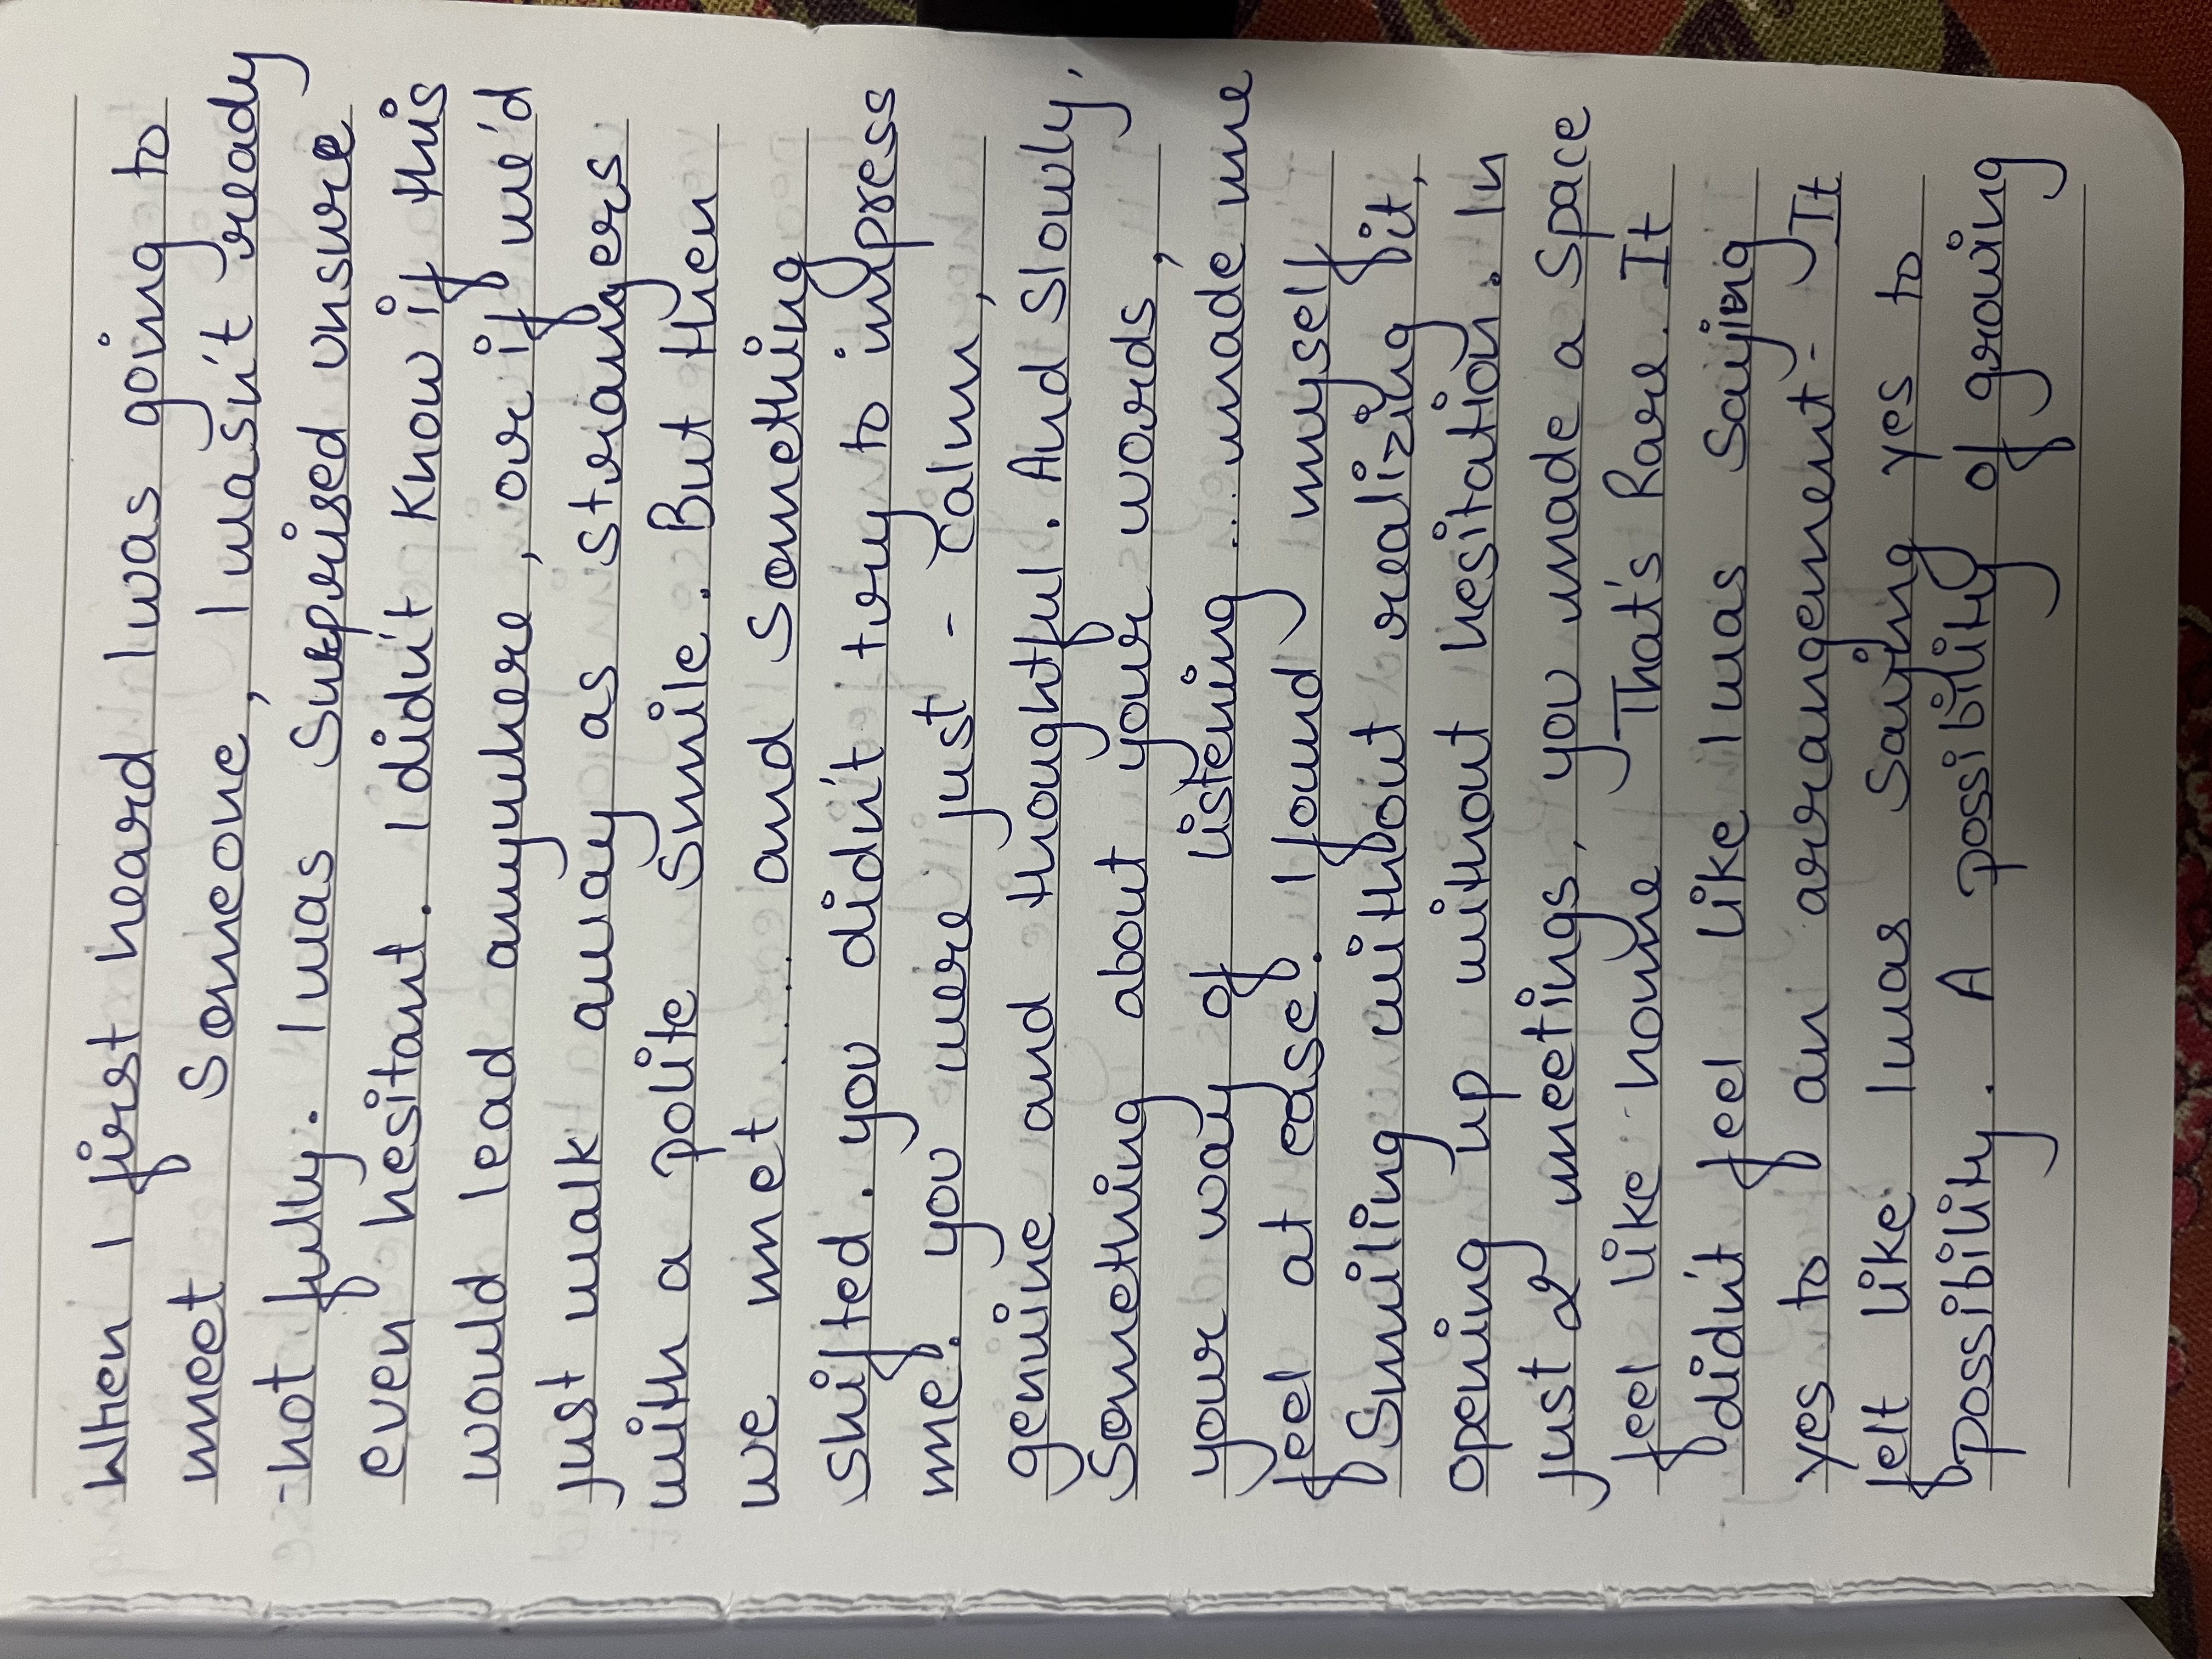 When I first heard I was going to
meet someone, I wasn't ready
-not fully. I was surprised unsure
even hesitant. I didn't know if this
would lead anywhere, or if we'd
just walk away as strangers
with a polite smile. But then
we met..... and something
shifted. you didn't try to impress
me. you were just - calm,
genuine and thoughtful. And slowly,
Something about your words,
your way of listening... made me
feel at ease. I found myself
smiling without realizing it,
opening up without hesitation. In
just 2 meetings, you made a space
feel like home. That's Rare. It
didn't feel like I was saying
yes to an arrangement - It
felt like I was saying yes to
possibility. A possibility of growing